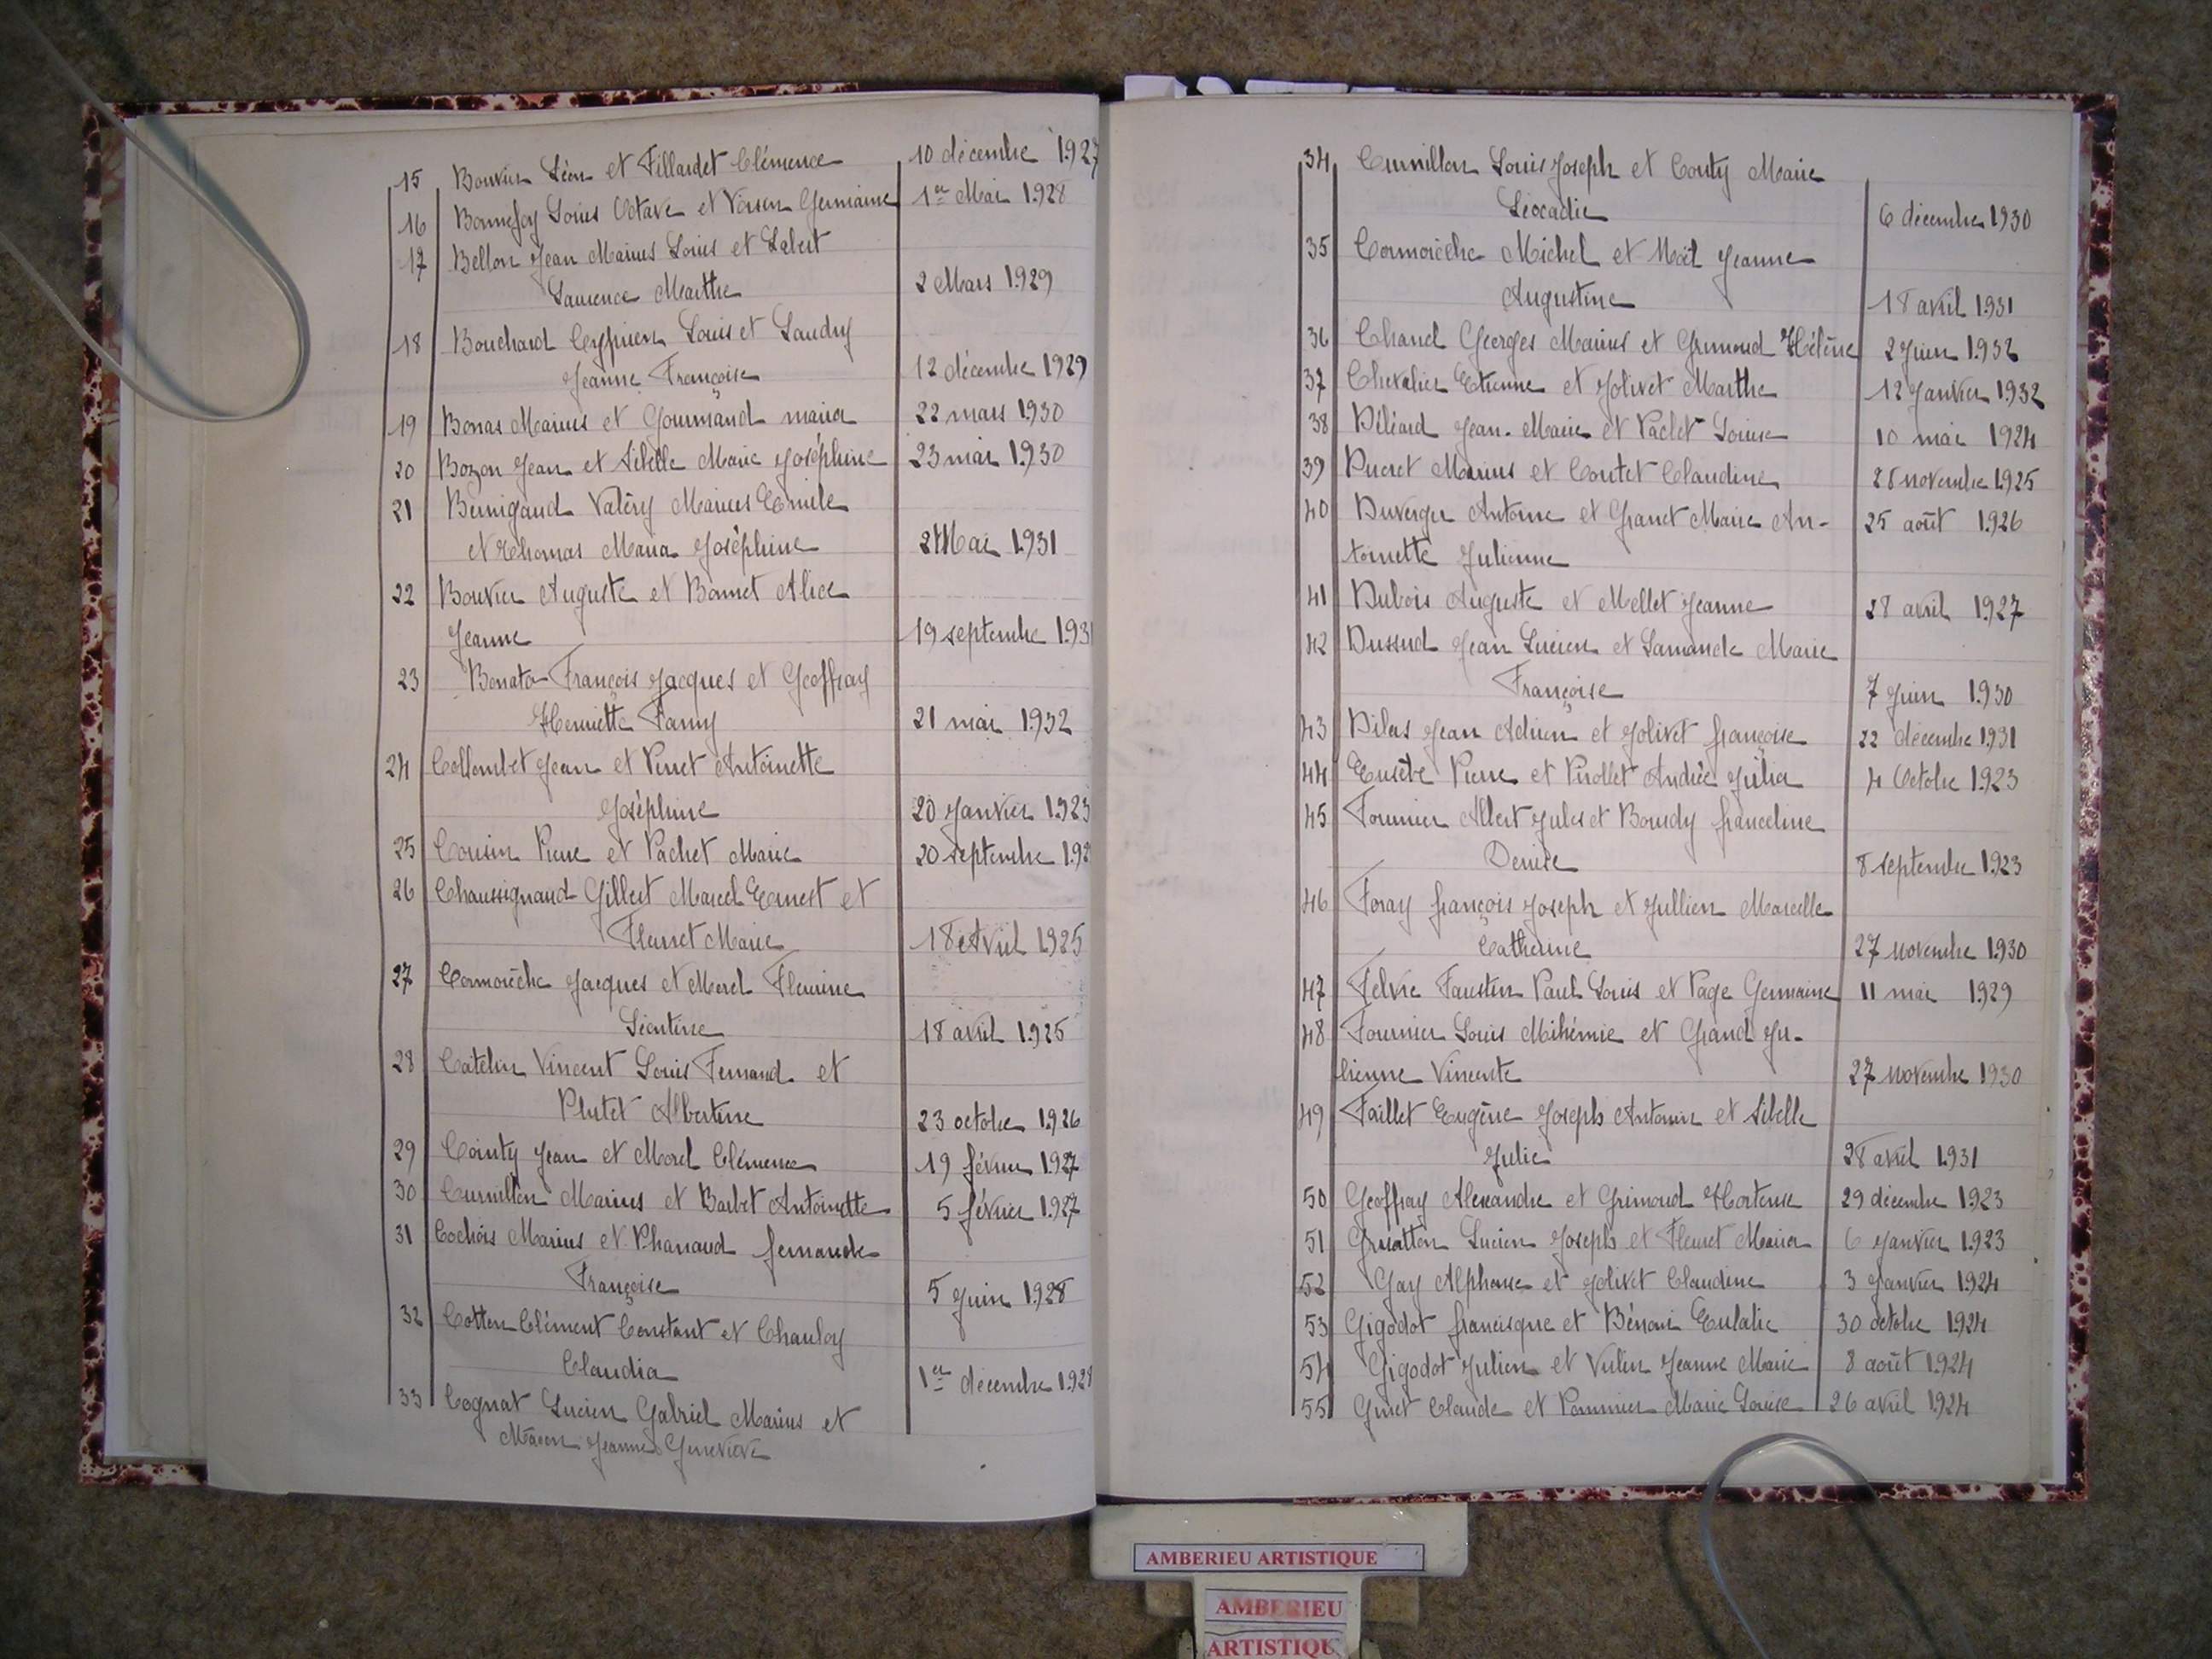 15 Bouvier Léon et Tillardet Clémence 10 décembre 1927
16 Bonnefoy Louis Octave et Voisin Germaine 1er Mai 1928
17 Bellon Jean Marius Louis et
Laurence Marthe 2 Mars 1929
18 Bouchard Cyprien Louis et Landry
Jeanne Françoise 12 décembre 1929
19 Bonas Marius et Gourmand maria 22 mars 1930
20 Bozon Jean et Sibelle Marie Joséphine 23 mai 1930
21 Bernigaud Valéry Marius Emile
et Thomas Maria Joséphine Mai 1931
22 Bouvier Auguste et Bonnet Alice
Jeanne 19 septembre 1931
23 Bonato François Jacques et Geoffray
Henriette Fanny 21 mai 1932
24 Collombet Jean et Perret Antoinette
Joséphine 20 Janvier 1923
25 Cousin Pierre et Pachet Marie 20 septembre
26 Chaussignaud Gilbert Marcel Ernest et
Fleuret Marie 18 Avril 1925
27 Cormorèche Jacques et Morel Fleurine
Léontine 18 avril 1925
28 Catelin Vincent Louis Fernand et
Plutet Albertine 23 octobre 1926
29 Cointy Jean et Morel Clémence 19 février 1927
30 Curnillon Marius et Barbet Antoinette 5 février 1927
31 Cochois Marius et Phanaud fernande
Françoise 5 Juin 1928
32 Cotton Clément Constant et Chauloy
Claudia 1er décembre 1928
33 Cognat Lucien Gabriel Marius et
Mâcon Jeanne Geneviève
34 Curnillon Louis Joseph et Conty Marie
Léocadie 6 décembre 1930
35 Cormorèche Michel et Noël Jeanne
Augustine 18 avril 1931
36 Chanel Georges Marius et Grimaud Hélène 2 Juin 1932
37 Chevalier Etienne et Jolivet Marthe 12 Janvier 1932
38 Déléard Jean-Marie et Paclet Louise 10 mai 1924
39 Ducret Marius et Contet Claudine 28 novembre 1925
40 Duverger Antoine et Granet Marie An- 25 août 1926
toinette Julienne
41 Dubois Auguste et Mellet Jeanne 28 avril 1927
42 Dussud Jean Lucien et Lamande Marie
Françoise 7 Juin 1930
43 Dilas Jean Adrien et Jolivet françoise 22 décembre 1931
44 Eusèbe Pierre et Pirollet Andrée Julia 4 Octobre 1923
45 Fournier Albert Jules et Bourdy franceline
Denise 8 septembre 1923
46 Foray françois Joseph et Jullien Marcelle
Catherine 27 novembre 1930
47 Felvre Faustin Paul Louis et Page Germaine 11 mai 1929
48 Fournier Louis et Grand Ju-
lienne Vincente 27 novembre 1930
49 Faillet Eugène Joseph Antonin et Sibelle
Julie 28 avril 1931
50 Geoffray Alexandre et Grimoud Hortense 29 décembre 1923
51 Gruatton Lucien Joseph et Fleuret Maria 6 Janvier 1923
52 Gay Alphonse et Jolivet Claudine 3 Janvier 1924
53 Gigodot francisque et Bénoni Eulalie 30 octobre 1924
54 Gigodot Julien et Vulin Jeanne Marie 8 août 1924
55 Guret Claude et Pommier Marie Louise 26 avril 1924
AMBERIEU ARTISTIQUE
AMBERIEU
ARTISTIQU